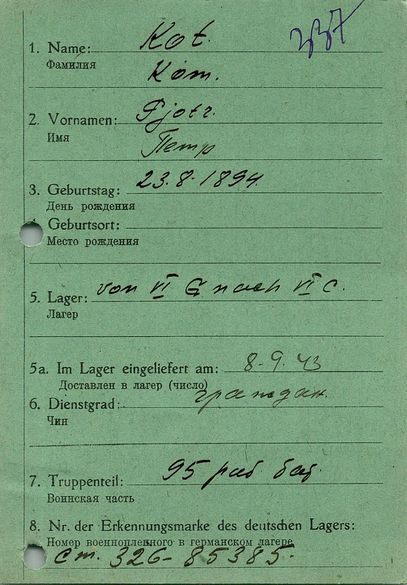 337
1. Name: Kot.
Фамилия
Кот.
2. Vornamen: Pjotr.
Имя
Петр
3. Geburtstag: 23.8-1894.
День рождения
4. Geburtsort:
Место рождения
5. Lager: von VI G nach VI C.
Лагер
5a. Im Lager eingeliefert am: 8-9.43
Доставлен в лагер (число)
6. Dienstgrad: граждан.
Чин
7. Truppenteil: 95 раб. бат.
Воинская часть
8. Nr. der Erkennungsmarke des deutschen Lagers:
Номер военнопленного в германском лагере
ст. 326-85385.